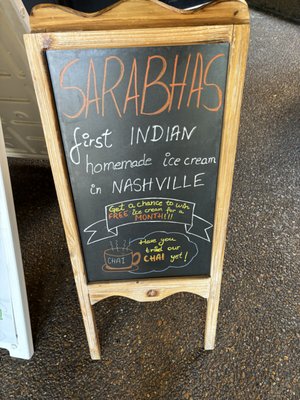 SARABHAS
first INDIAN
homemade ice cream
in NASHVILLE
Get a chance to win
FREE ice cream for a
MONTH!!!
Have you
tried our
CHAI yet!
CHAI